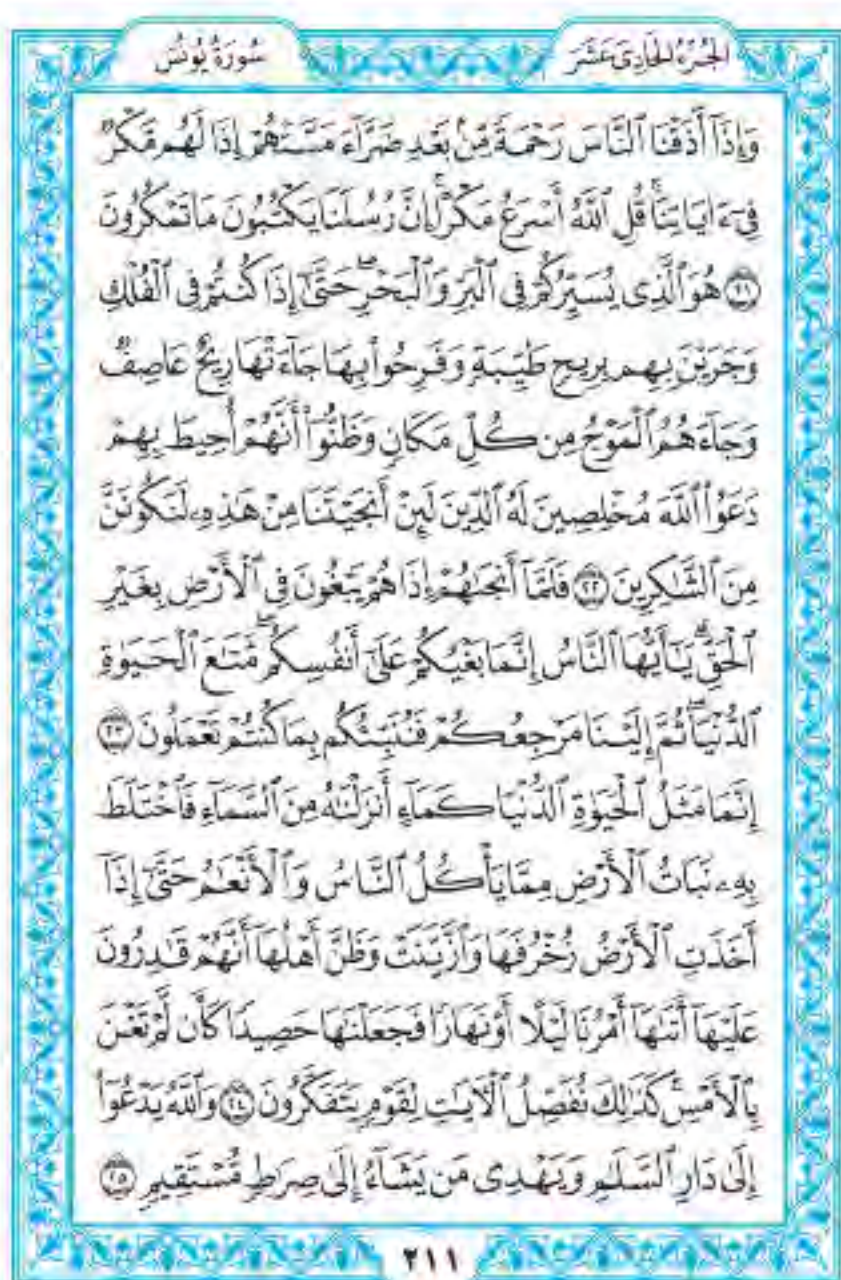 الجُزْءُ الحَادِي عَشَرَ
سُورَةُ يُونُسَ
وَإِذَآ أَذَقْنَا ٱلنَّاسَ رَحْمَةً مِّنۢ بَعْدِ ضَرَّآءَ مَسَّتْهُمْ إِذَا لَهُم مَّكْرٌ
فِىٓ ءَايَاتِنَاۚ قُلِ ٱللَّهُ أَسْرَعُ مَكْرًاۚ إِنَّ رُسُلَنَا يَكْتُبُونَ مَا تَمْكُرُونَ
٢١ هُوَ ٱلَّذِى يُسَيِّرُكُمْ فِى ٱلْبَرِّ وَٱلْبَحْرِۖ حَتَّىٰٓ إِذَا كُنتُمْ فِى ٱلْفُلْكِ
وَجَرَيْنَ بِهِم بِرِيحٍ طَيِّبَةٍ وَفَرِحُوا۟ بِهَا جَآءَتْهَا رِيحٌ عَاصِفٌ
وَجَآءَهُمُ ٱلْمَوْجُ مِن كُلِّ مَكَانٍ وَظَنُّوٓا۟ أَنَّهُمْ أُحِيطَ بِهِمْ
دَعَوُا۟ ٱللَّهَ مُخْلِصِينَ لَهُ ٱلدِّينَ لَئِنْ أَنجَيْتَنَا مِنْ هَٰذِهِۦ لَنَكُونَنَّ
مِنَ ٱلشَّٰكِرِينَ ٢٢ فَلَمَّآ أَنجَىٰهُمْ إِذَا هُمْ يَبْغُونَ فِى ٱلْأَرْضِ بِغَيْرِ
ٱلْحَقِّۗ يَٰٓأَيُّهَا ٱلنَّاسُ إِنَّمَا بَغْيُكُمْ عَلَىٰٓ أَنفُسِكُمۖ مَّتَٰعَ ٱلْحَيَوٰةِ
ٱلدُّنْيَاۖ ثُمَّ إِلَيْنَا مَرْجِعُكُمْ فَنُنَبِّئُكُم بِمَا كُنتُمْ تَعْمَلُونَ ٢٣
إِنَّمَا مَثَلُ ٱلْحَيَوٰةِ ٱلدُّنْيَا كَمَآءٍ أَنزَلْنَٰهُ مِنَ ٱلسَّمَآءِ فَٱخْتَلَطَ
بِهِۦ نَبَاتُ ٱلْأَرْضِ مِمَّا يَأْكُلُ ٱلنَّاسُ وَٱلْأَنْعَٰمُ حَتَّىٰٓ إِذَآ
أَخَذَتِ ٱلْأَرْضُ زُخْرُفَهَا وَٱزَّيَّنَتْ وَظَنَّ أَهْلُهَآ أَنَّهُمْ قَٰدِرُونَ
عَلَيْهَآ أَتَىٰهَآ أَمْرُنَا لَيْلًا أَوْ نَهَارًا فَجَعَلْنَٰهَا حَصِيدًا كَأَن لَّمْ تَغْنَ
بِٱلْأَمْسِۚ كَذَٰلِكَ نُفَصِّلُ ٱلْـَٔايَٰتِ لِقَوْمٍ يَتَفَكَّرُونَ ٢٤ وَٱللَّهُ يَدْعُوٓا۟
إِلَىٰ دَارِ ٱلسَّلَٰمِ وَيَهْدِى مَن يَشَآءُ إِلَىٰ صِرَٰطٍ مُّسْتَقِيمٍ ٢٥
٢١١